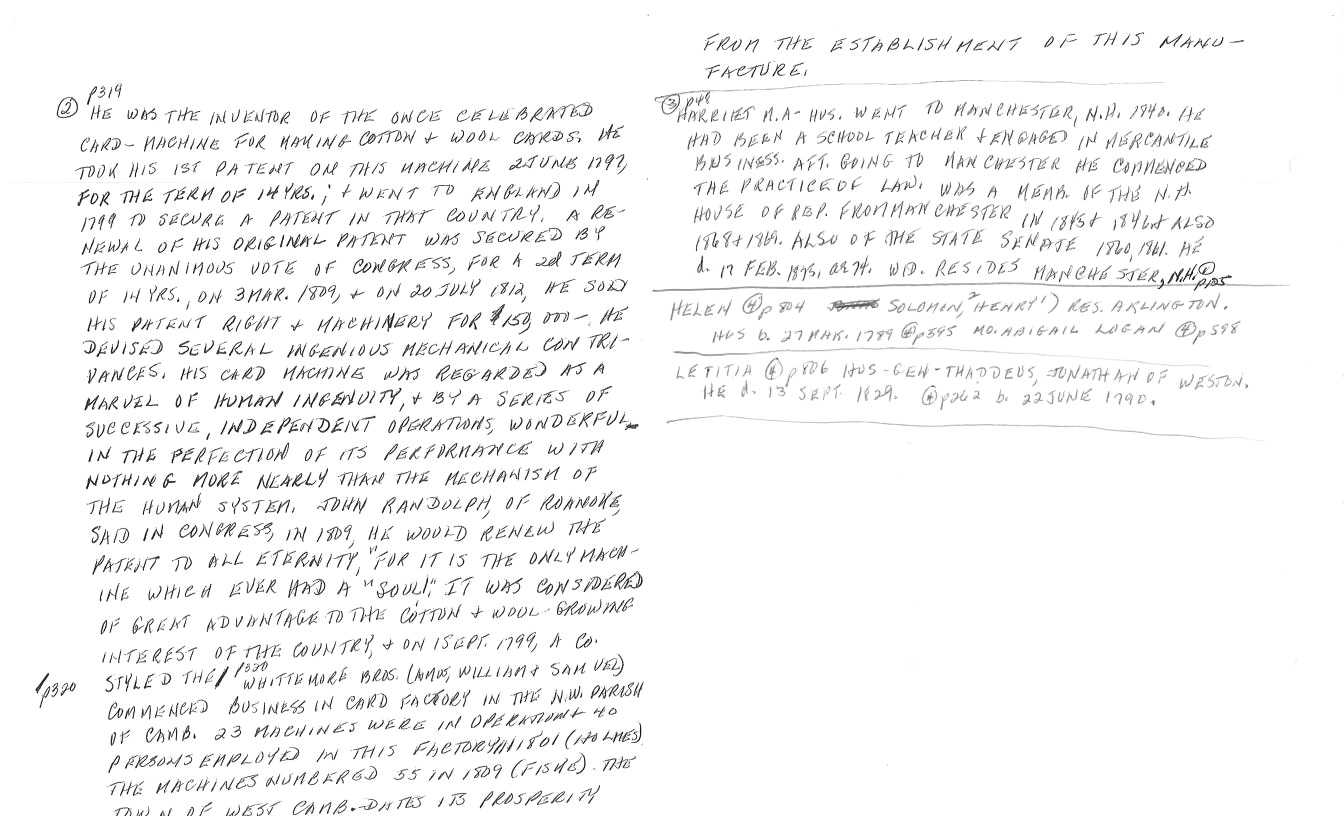 p319
② HE WAS THE INVENTOR OF THE ONCE CELEBRATED
CARD-MACHINE FOR MAKING COTTON & WOOL CARDS. HE
TOOK HIS 1ST PATENT ON THIS MACHINE 2 JUNE 1797,
FOR THE TERM OF 14 YRS.; & WENT TO ENGLAND IN
1799 TO SECURE A PATENT IN THAT COUNTRY. A RE-
NEWAL OF HIS ORIGINAL PATENT WAS SECURED BY
THE UNANIMOUS VOTE OF CONGRESS, FOR A 2d TERM
OF 14 YRS., ON 3 MAR. 1809, & ON 20 JULY 1812, HE SOLD
HIS PATENT RIGHT & MACHINERY FOR $150,000-. HE
DEVISED SEVERAL INGENIOUS MECHANICAL CONTRI-
VANCES. HIS CARD MACHINE WAS REGARDED AS A
MARVEL OF HUMAN INGENUITY, & BY A SERIES OF
SUCCESSIVE, INDEPENDENT OPERATIONS, WONDERFUL
IN THE PERFECTION OF ITS PERFORMANCE WITH
NOTHING MORE NEARLY THAN THE MECHANISM OF
THE HUMAN SYSTEM. JOHN RANDOLPH, OF ROANOKE,
SAID IN CONGRESS, IN 1809, HE WOULD RENEW THE
PATENT TO ALL ETERNITY, "FOR IT IS THE ONLY MACH-
INE WHICH EVER HAD A "SOUL!" IT WAS CONSIDERED
OF GREAT ADVANTAGE TO THE COTTON & WOOL-GROWING
INTEREST OF THE COUNTRY, & ON 1 SEPT. 1799, A CO.
STYLED THE / p320 WHITTEMORE BROS. (AMOS, WILLIAM & SAMUEL)
/p320
COMMENCED BUSINESS IN CARD FACTORY IN THE N.W. PARISH
OF CAMB. 23 MACHINES WERE IN OPERATION & 40
PERSONS EMPLOYED IN THIS FACTORY IN 1801 (HOLMES)
THE MACHINES NUMBERED 55 IN 1809 (FISKE). THE
TOWN OF WEST CAMB. DATES ITS PROSPERITY
FROM THE ESTABLISHMENT OF THIS MANU-
FACTURE.
③ p48
HARRIET M.A- HUS. WENT TO MANCHESTER, N.H. 1840. HE
HAD BEEN A SCHOOL TEACHER & ENGAGED IN MERCANTILE
BUSINESS. AFT. GOING TO MANCHESTER HE COMMENCED
THE PRACTICE OF LAW. WAS A MEMB. OF THE N.H.
HOUSE OF REP. FROM MANCHESTER IN 1845 & 1846 & ALSO
1868 & 1869. ALSO OF THE STATE SENATE 1860, 1861. HE
d. 17 FEB. 1875, ae 74. WID. RESIDES MANCHESTER, N.H. p105
HELEN ④ p804 SOLOMON,² HENRY¹) RES. ARLINGTON.
HUS b. 27 MAR. 1789 ④ p595 MO. ABIGAIL LOGAN ④ p598
LETITIA ④ p806 HUS-GEN-THADDEUS, JONATHAN OF WESTON.
HE d. 13 SEPT. 1829. ④ p262 b. 22 JUNE 1790.